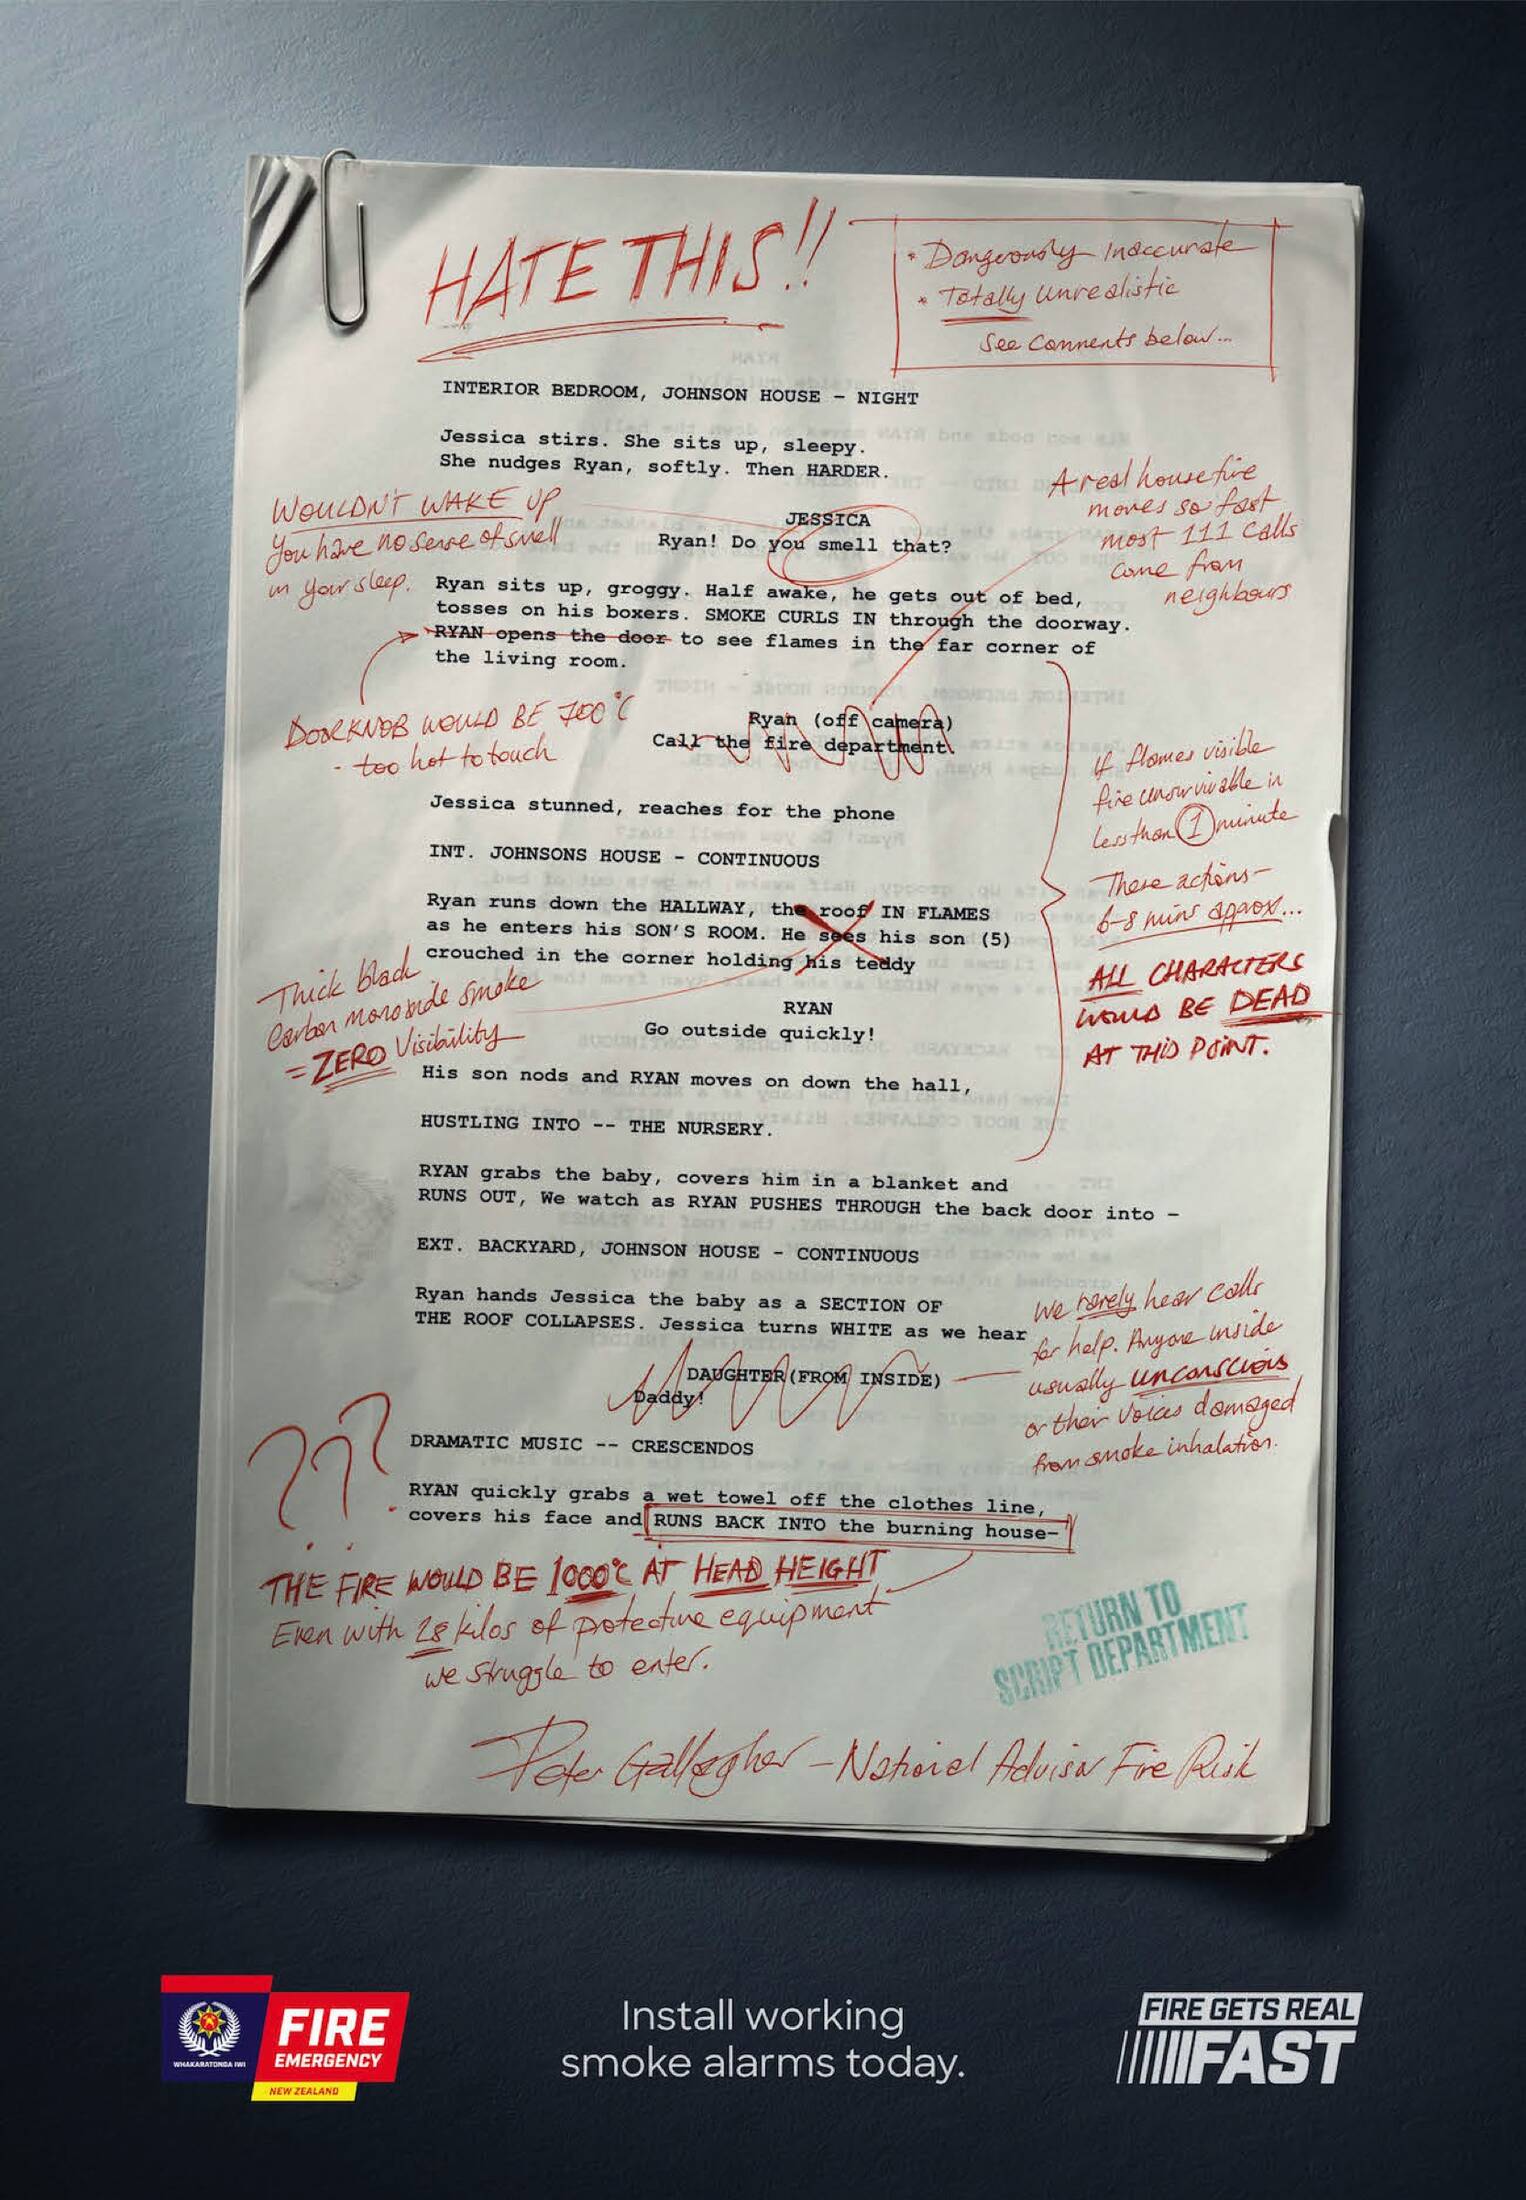 HATE THIS!!
* Dangerously Inaccurate
* Totally Unrealistic
See Comments below...
INTERIOR BEDROOM, JOHNSON HOUSE - NIGHT
Jessica stirs. She sits up, sleepy.
She nudges Ryan, softly. Then HARDER.
WOULDN'T WAKE UP
You have no sense of smell
in your sleep.
JESSICA
Ryan! Do you smell that?
A real house fire
moves so fast
most 111 calls
come from
neighbours
Ryan sits up, groggy. Half awake, he gets out of bed,
tosses on his boxers. SMOKE CURLS IN through the doorway.
RYAN opens the door to see flames in the far corner of
the living room.
DOORKNOB WOULD BE 700°C
- too hot to touch
Ryan (off camera)
Call the fire department.
Jessica stunned, reaches for the phone
If flames visible
fire unsurvivable in
less than 1 minute
These actions -
6-8 mins approx...
ALL CHARACTERS
WOULD BE DEAD
AT THIS POINT.
INT. JOHNSONS HOUSE - CONTINUOUS
Ryan runs down the HALLWAY, the roof IN FLAMES
as he enters his SON'S ROOM. He sees his son (5)
crouched in the corner holding his teddy
Thick black
Carbon monoxide smoke
= ZERO Visibility
RYAN
Go outside quickly!
His son nods and RYAN moves on down the hall,
HUSTLING INTO -- THE NURSERY.
RYAN grabs the baby, covers him in a blanket and
RUNS OUT, We watch as RYAN PUSHES THROUGH the back door into -
EXT. BACKYARD, JOHNSON HOUSE - CONTINUOUS
Ryan hands Jessica the baby as a SECTION OF
THE ROOF COLLAPSES. Jessica turns WHITE as we hear
DAUGHTER(FROM INSIDE)
Daddy!
We rarely hear calls
for help. Anyone inside
usually unconscious
or their voices damaged
from smoke inhalation.
DRAMATIC MUSIC -- CRESCENDOS
???
RYAN quickly grabs a wet towel off the clothes line,
covers his face and RUNS BACK INTO the burning house-
THE FIRE WOULD BE 1000°C AT HEAD HEIGHT
Even with 28 kilos of protective equipment
we struggle to enter.
RETURN TO
SCRIPT DEPARTMENT
Peter Gallagher - National Advisor Fire Risk
WHAKARATONGA IWI
FIRE
EMERGENCY
NEW ZEALAND
Install working
smoke alarms today.
FIRE GETS REAL
FAST